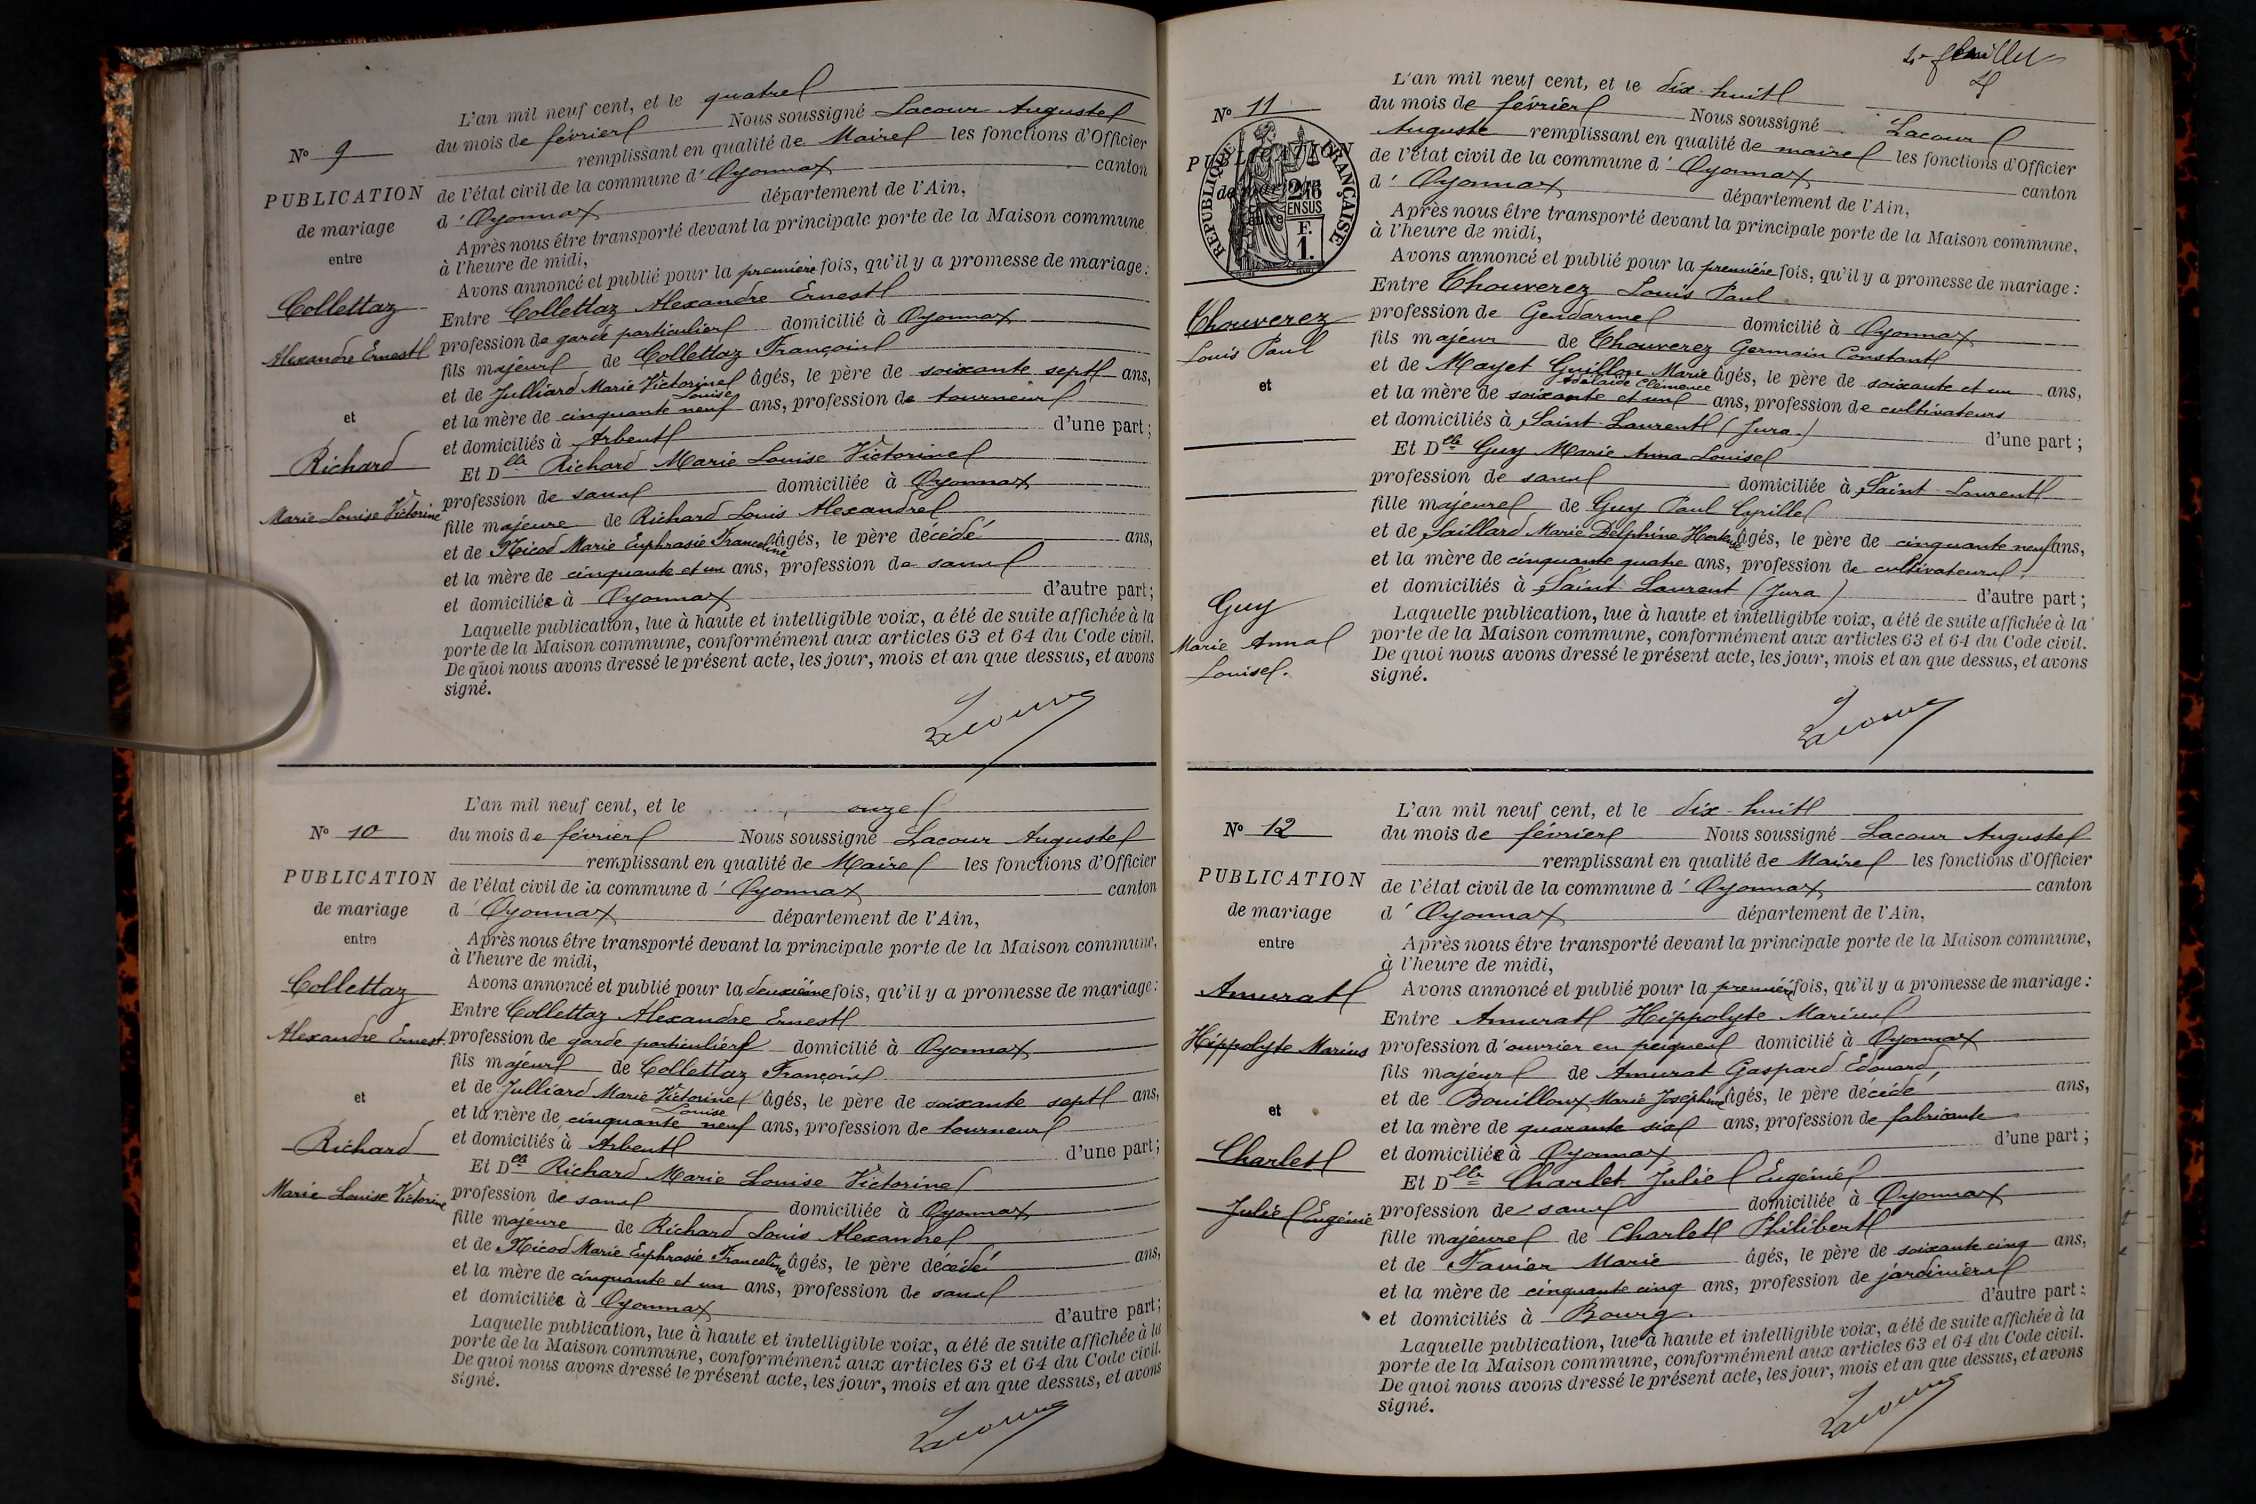 N° 9
PUBLICATION
de mariage
entre
Collettaz
Alexandre Ernest
et
Richard
Marie Louise Victorine
L'an mil neuf cent, et le quatre
du mois de février Nous soussigné Lacour Auguste
remplissant en qualité de Maire les fonctions d'Officier
de l'état civil de la commune d' Oyonnax canton
d' Oyonnax département de l'Ain,
Après nous être transporté devant la principale porte de la Maison commune
à l'heure de midi,
Avons annoncé et publié pour la première fois, qu'il y a promesse de mariage :
Entre Collettaz Alexandre Ernest
profession de garde particulier domicilié à Oyonnax
fils majeur de Collettaz François
et de Julliard Marie Victorine Louise âgés, le père de soixante sept ans,
et la mère de cinquante neuf ans, profession de tourneur
et domiciliés à Arbent d'une part ;
Et Dlle Richard Marie Louise Victorine
profession de sans domiciliée à Oyonnax
fille majeure de Richard Louis Alexandre
et de Nicod Marie Euphrasie Franceline âgés, le père décédé ans,
et la mère de cinquante et un ans, profession de sans
et domiciliée à Oyonnax d'autre part ;
Laquelle publication, lue à haute et intelligible voix, a été de suite affichée à la
porte de la Maison commune, conformément aux articles 63 et 64 du Code civil.
De quoi nous avons dressé le présent acte, les jour, mois et an que dessus, et avons
signé.
Lacour
N° 10
PUBLICATION
de mariage
entre
Collettaz
Alexandre Ernest.
et
Richard
Marie Louise Victorine
L'an mil neuf cent, et le onze
du mois de février Nous soussigné Lacour Auguste
remplissant en qualité de Maire les fonctions d'Officier
de l'état civil de la commune d' Oyonnax canton
d' Oyonnax département de l'Ain,
Après nous être transporté devant la principale porte de la Maison commune,
à l'heure de midi,
Avons annoncé et publié pour la deuxième fois, qu'il y a promesse de mariage :
Entre Collettaz Alexandre Ernest
profession de garde particulier domicilié à Oyonnax
fils majeur de Collettaz François
et de Julliard Marie Victorine Louise âgés, le père de soixante sept ans,
et la mère de cinquante neuf ans, profession de tourneur
et domiciliés à Arbent d'une part ;
Et Dlle Richard Marie Louise Victorine
profession de sans domiciliée à Oyonnax
fille majeure de Richard Louis Alexandre
et de Nicod Marie Euphrasie Franceline âgés, le père décédé ans,
et la mère de cinquante et un ans, profession de sans
et domiciliée à Oyonnax d'autre part ;
Laquelle publication, lue à haute et intelligible voix, a été de suite affichée à la
porte de la Maison commune, conformément aux articles 63 et 64 du Code civil.
De quoi nous avons dressé le présent acte, les jour, mois et an que dessus, et avons
signé.
Lacour
2e feuillet
N° 11
PUBLICATION
de mariage
entre
REPUBLIQUE FRANÇAISE
2/10 EN SUS
F.
1.
Chouverez
Louis Paul
et
Guy
Marie Anna
Louise.
L'an mil neuf cent, et le dix-huit
du mois de février Nous soussigné Lacour
Auguste remplissant en qualité de maire les fonctions d'Officier
de l'état civil de la commune d' Oyonnax canton
d' Oyonnax département de l'Ain,
Après nous être transporté devant la principale porte de la Maison commune,
à l'heure de midi,
Avons annoncé et publié pour la première fois, qu'il y a promesse de mariage :
Entre Chouverez Louis Paul
profession de Gendarme domicilié à Oyonnax
fils majeur de Chouverez Germain Constant
et de Mayet Guillon Marie Adélaïde Clémence âgés, le père de soixante et un ans,
et la mère de soixante et un ans, profession de cultivateurs
et domiciliés à Saint Laurent (Jura.) d'une part ;
Et Dlle Guy Marie Anna Louise
profession de sans domiciliée à Saint-Laurent
fille majeure de Guy Paul Cyrille
et de Saillard Marie Delphine Hortense âgés, le père de cinquante neuf ans,
et la mère de cinquante quatre ans, profession de cultivateurs,
et domiciliés à Saint Laurent (Jura) d'autre part ;
Laquelle publication, lue à haute et intelligible voix, a été de suite affichée à la
porte de la Maison commune, conformément aux articles 63 et 64 du Code civil.
De quoi nous avons dressé le présent acte, les jour, mois et an que dessus, et avons
signé.
Lacour
N° 12
PUBLICATION
de mariage
entre
Amurat
Hippolyte Marius
et
Charlet
Julie Eugénie
L'an mil neuf cent, et le dix-huit
du mois de février Nous soussigné Lacour Auguste
remplissant en qualité de Maire les fonctions d'Officier
de l'état civil de la commune d' Oyonnax canton
d' Oyonnax département de l'Ain,
Après nous être transporté devant la principale porte de la Maison commune,
à l'heure de midi,
Avons annoncé et publié pour la première fois, qu'il y a promesse de mariage :
Entre Amurat Hippolyte Marius
profession d'ouvrier en peignes domicilié à Oyonnax
fils majeur de Amurat Gaspard Edouard,
et de Bouilloux Marie Joséphine âgés, le père décédé ans,
et la mère de quarante six ans, profession de fabricante
et domiciliée à Oyonnax d'une part ;
Et Dlle Charlet Julie Eugénie
profession de sans domiciliée à Oyonnax
fille majeure de Charlet Philibert
et de Favier Marie âgés, le père de soixante cinq ans,
et la mère de cinquante cinq ans, profession de jardiniers
et domiciliés à Bourg d'autre part ;
Laquelle publication, lue à haute et intelligible voix, a été de suite affichée à la
porte de la Maison commune, conformément aux articles 63 et 64 du Code civil.
De quoi nous avons dressé le présent acte, les jour, mois et an que dessus, et avons
signé.
Lacour